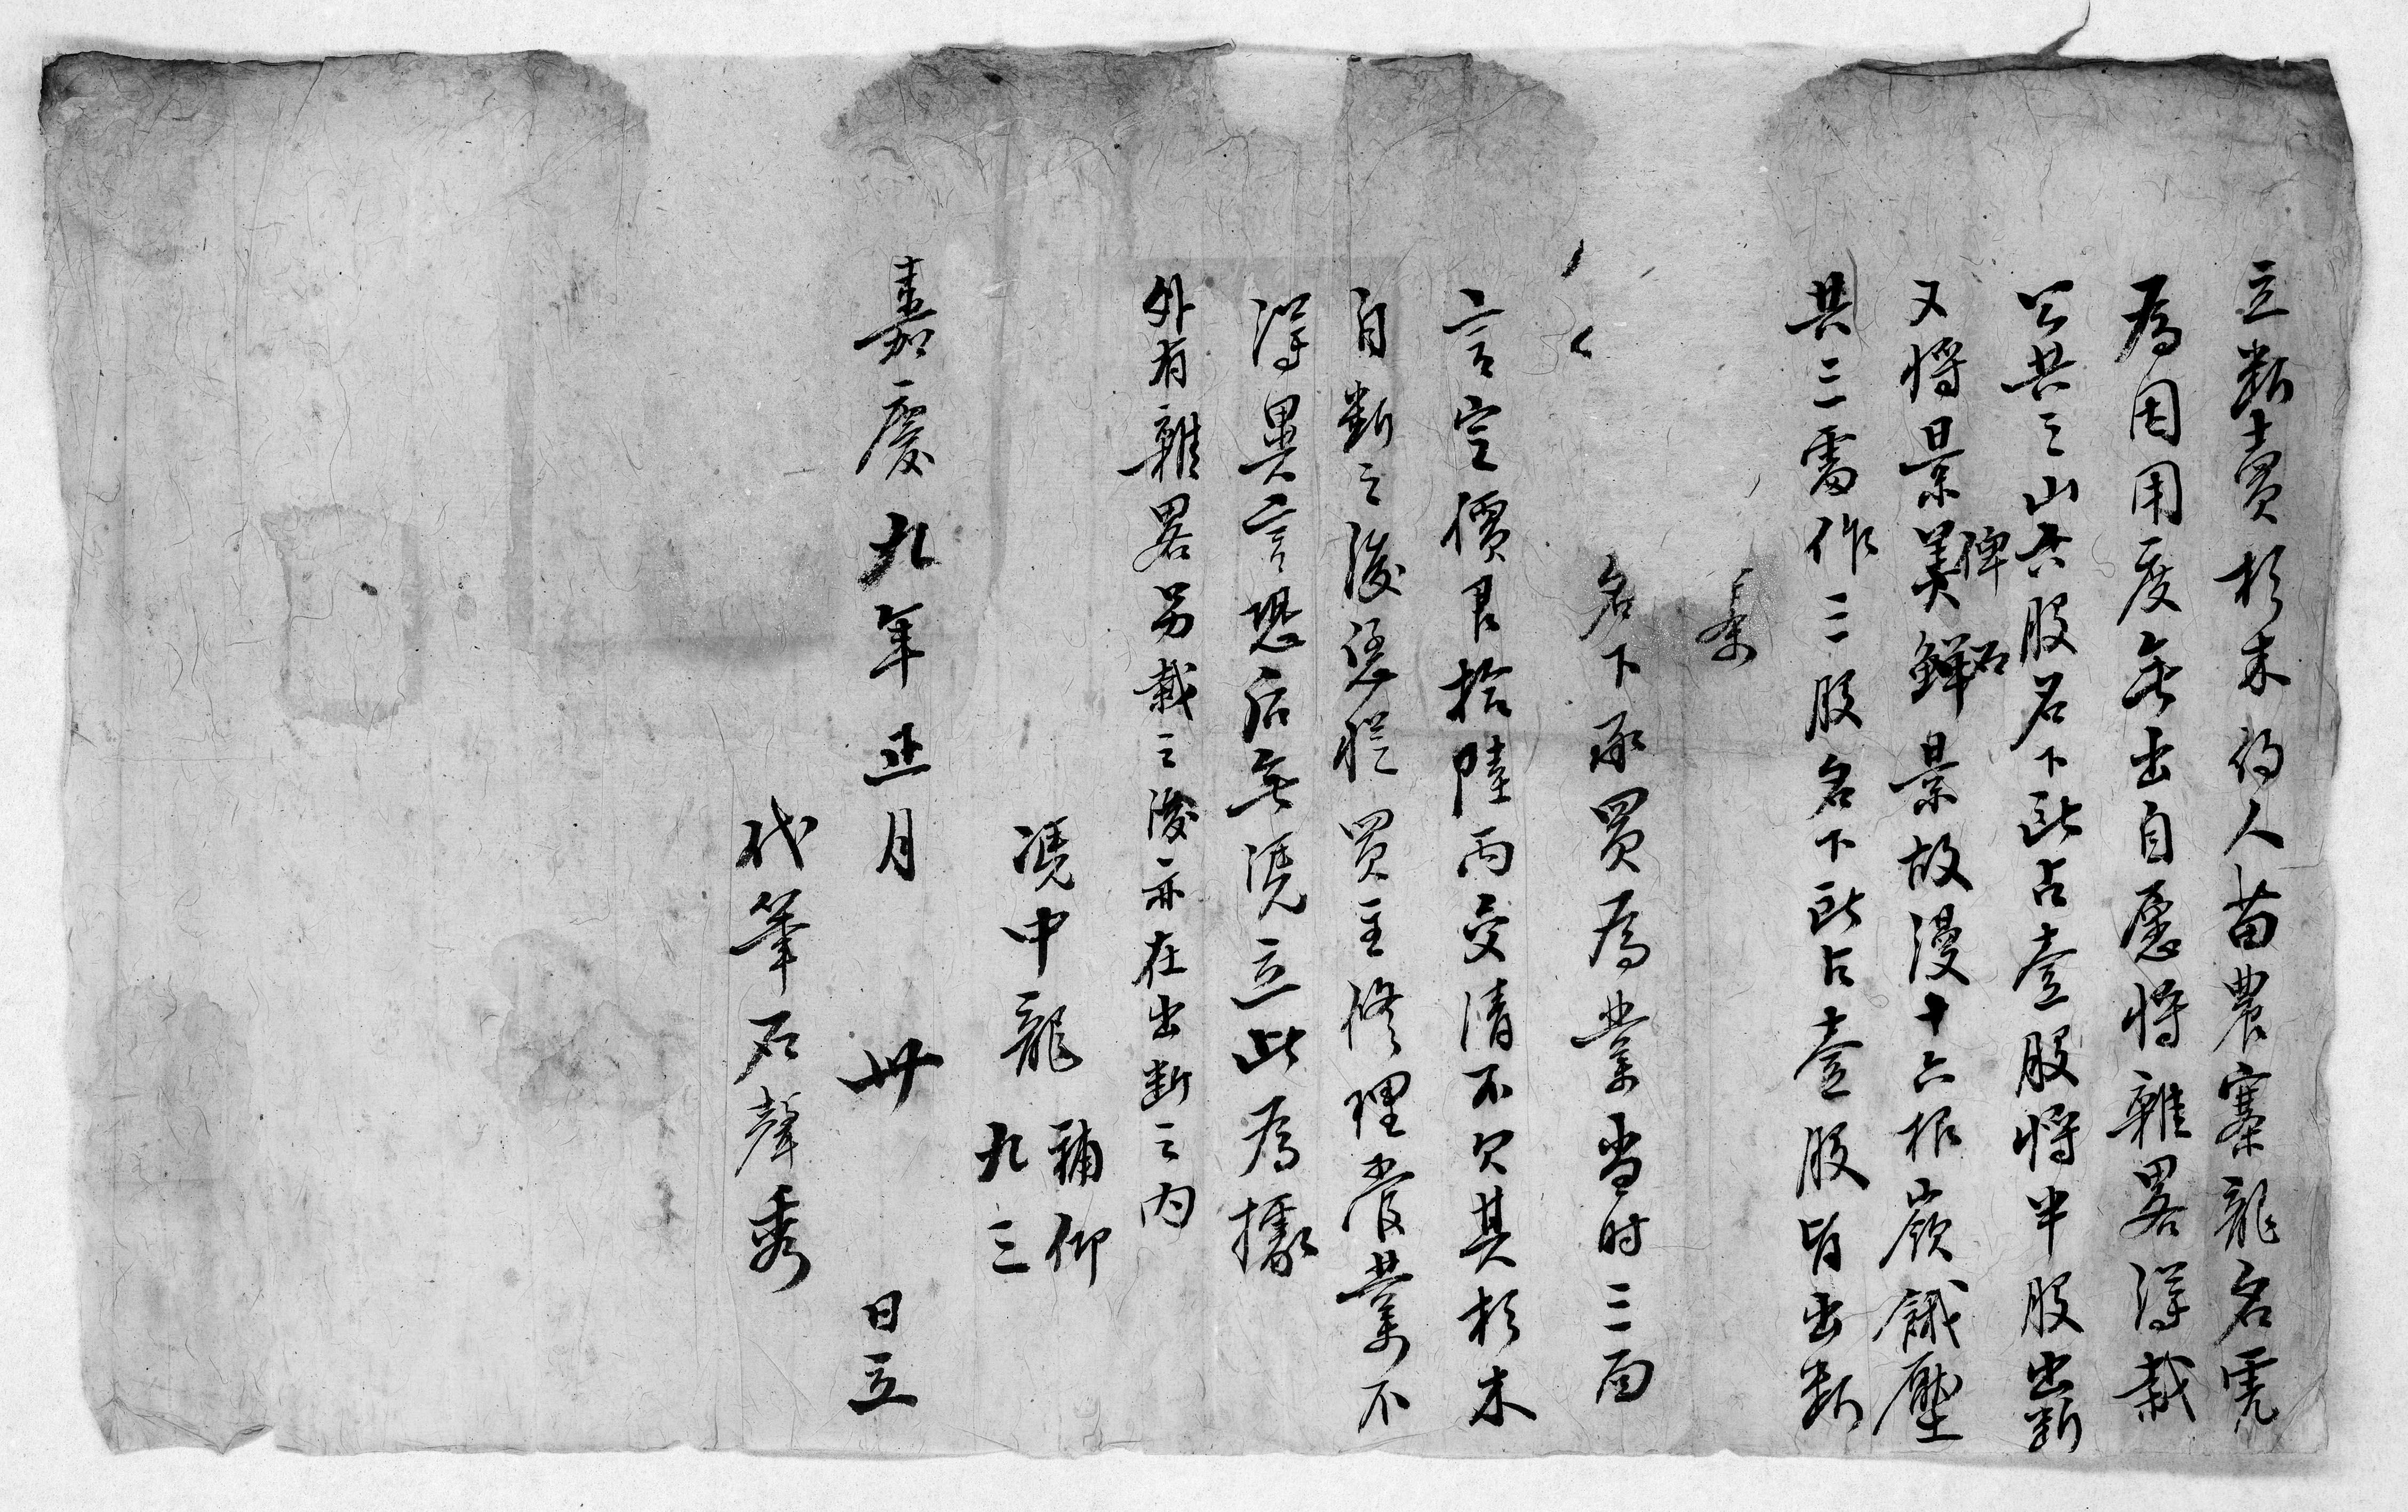 立断賣杉木約人苗農寨龍名霓
為因用度無出自愿將雜畧得栽
公共之山共六股名下所占壹股將半股出断
又將景美鲜景故漫十六根嶺餓壓
俾石
共三處作三股名下所占壹股皆出断
名下承買為業當时三面
言定價艮拾陸両交清不欠其杉木
自断之後憑從買主修理管業不
得異言恐后無憑立此為據
外有雜畧另栽之後亦在出断之内
憑中龍補仰
九三
嘉慶九年正月卅日立
代筆石聲秀